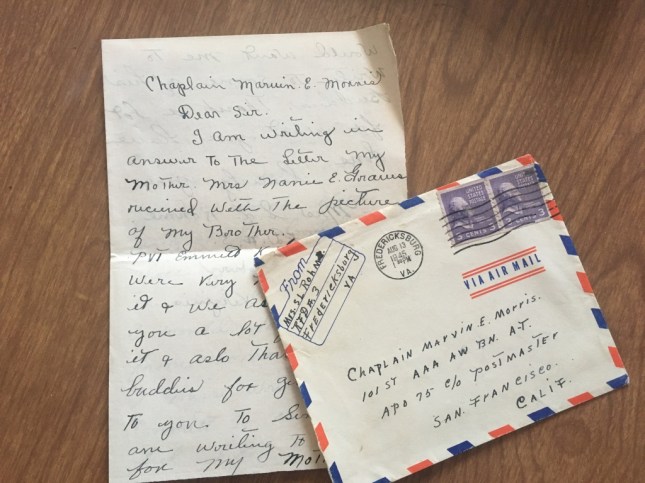 Chaplain Marvin E. Morris
Dear Sir.
I am writing in
answer To The Letter my
MoTher. Mrs Nanie E. Graves
received With The picture
of my BroTher.
PVT Emmett
Were Very
it & We as
you a lot
it & aslo Tha
buddies for g
To you. To
am writing
for my MoT
UNITED STATES POSTAGE
3 CENTS 3
UNITED STATES POSTAGE
3 CENTS 3
FREDERICKSBURG
AUG 13
1945
PM
VA.
VIA AIR MAIL
From
Mrs. S.L.
R.F.D. # 3
Fredericksburg
VA
Chaplain Marvin E. Morris.
101 ST AAA AW BN. A.T.
APO 75 c/o POSTMASTER
SAN. FRANCISCO.
CALIF.